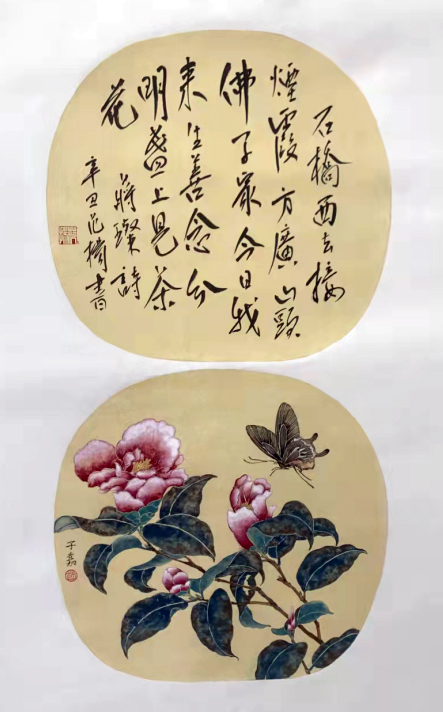 石橋西去接
煙霞方廣山頭
佛子家今日我
來生善念分
明盞上見茶
花
蔣璨詩
辛丑范書
子